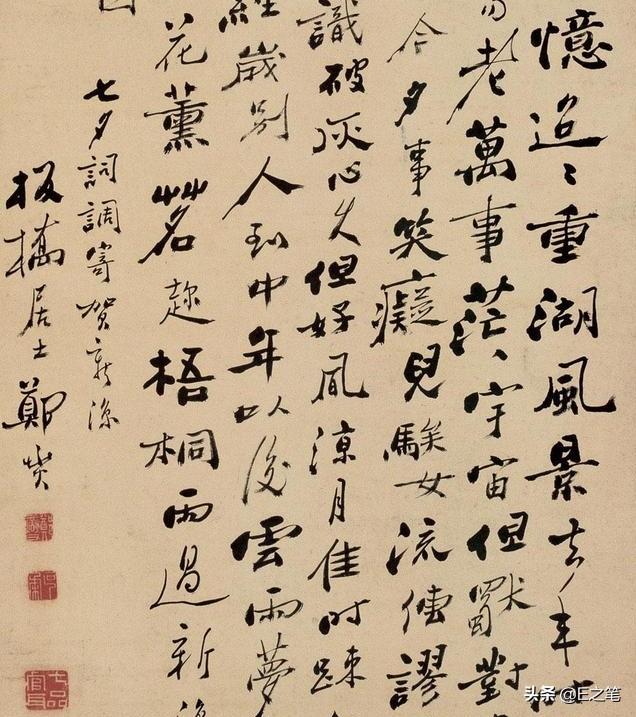 憶迢々重湖風景去年
老萬事茫々宇宙但默對
今夕事笑癡兒騃女流傳謬
識破灰心久但好風涼月佳時疎
經歲別人到中年以後雲雨夢
花薰茗趁梧桐雨過新
七夕詞調寄賀新涼
板橋居士鄭燮
七品官耳
头条 @E之笔